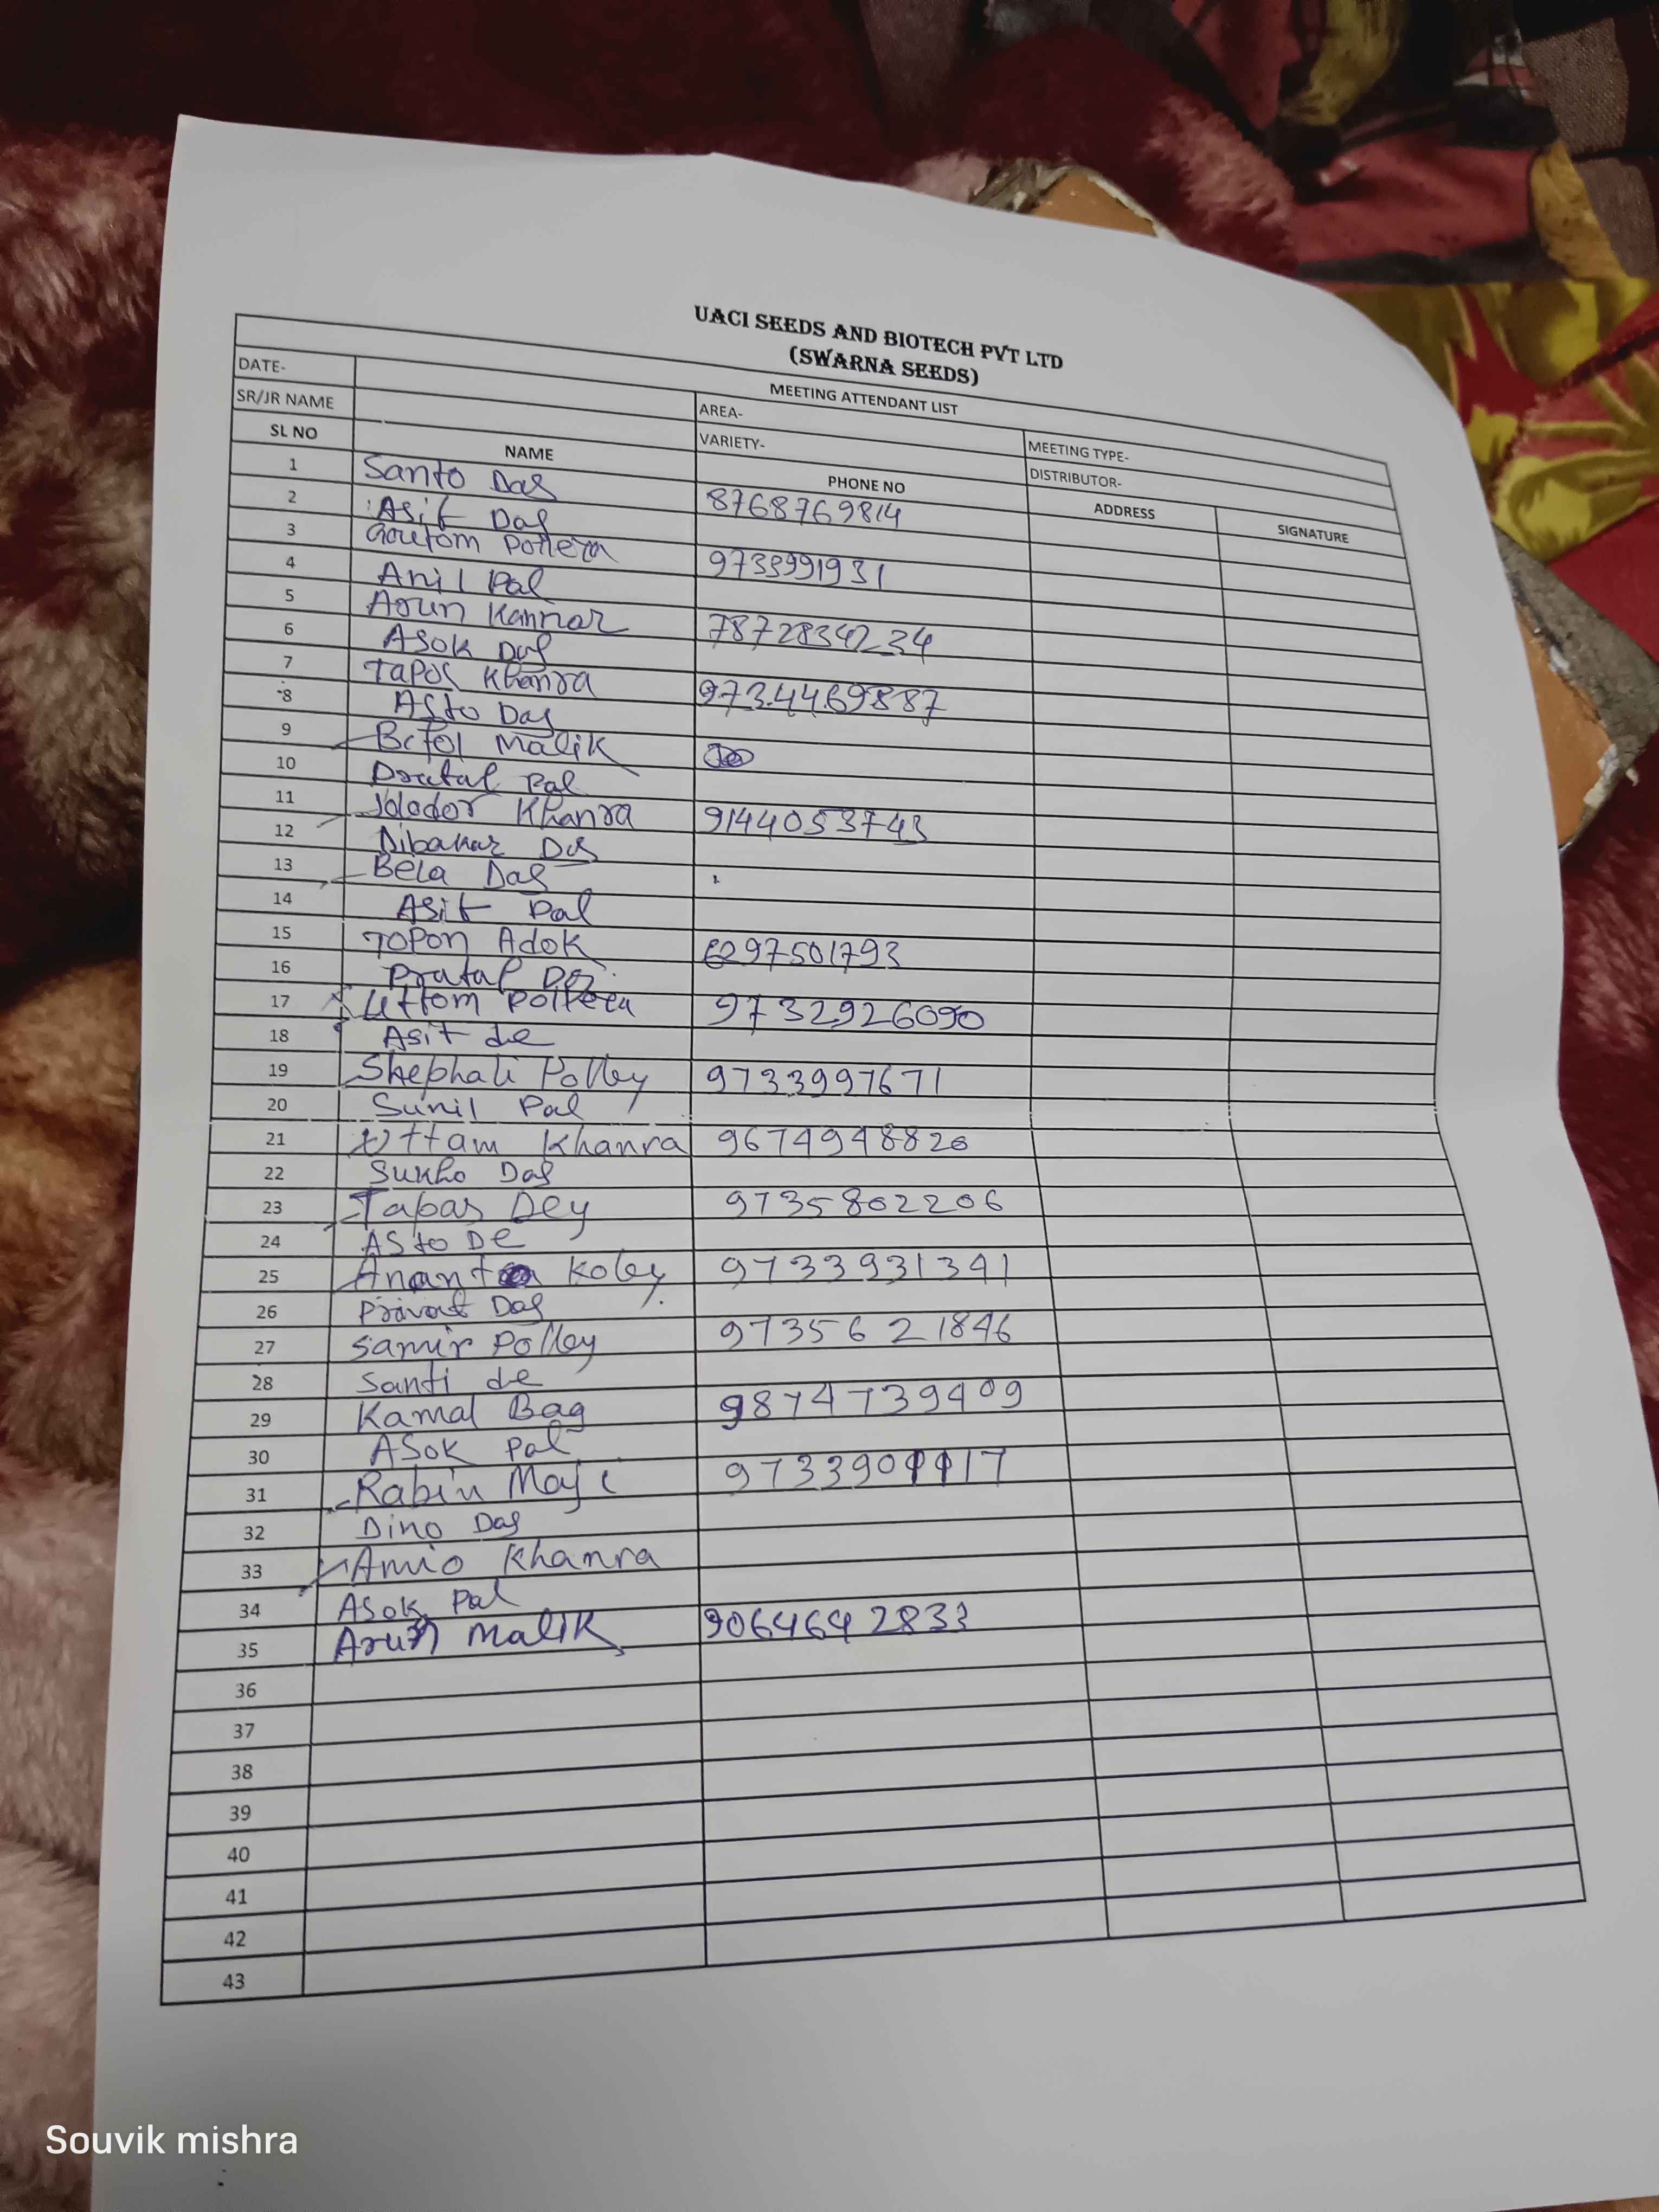 UACI SEEDS AND BIOTECH PVT LTD
(SWARNA SEEDS)
MEETING ATTENDANT LIST
DATE- AREA- MEETING TYPE-
SR/JR NAME VARIETY- DISTRIBUTOR-
SL NO NAME PHONE NO ADDRESS SIGNATURE
1 Santo Das 8768769814
2 Asit Das
3 Goutom Pollera 9733991931
4 Anil Pal
5 Arun Kannar 7872834234
6 Asok Das
7 Tapos Khanra 9734469887
8 Asto Das
9 Malik
10 Pal
11 Khanra 9144053743
12 Dibakar Das
13 Bela Das
14 Asit Pal
15 Topon Adok 6297501793
16
17 Uttom 9732926090
18 Asit de
19 Shephali Polley 9733997671
20 Sunil Pal
21 Uttam Khanra 9674948820
22 Sukho Das
23 Tapas Dey 9735802206
24 Asto De
25 Koley 9733931341
26 Das
27 Samir Polley 9735621846
28 Santi de
29 Kamal Bag 9874739409
30 ASok Pal
31 Rabin Maji
32 Dino Das
33 Khanra
34 ASok Pal
35 Arun Malik 9064642833
36
37
38
39
40
41
42
43
Souvik mishra